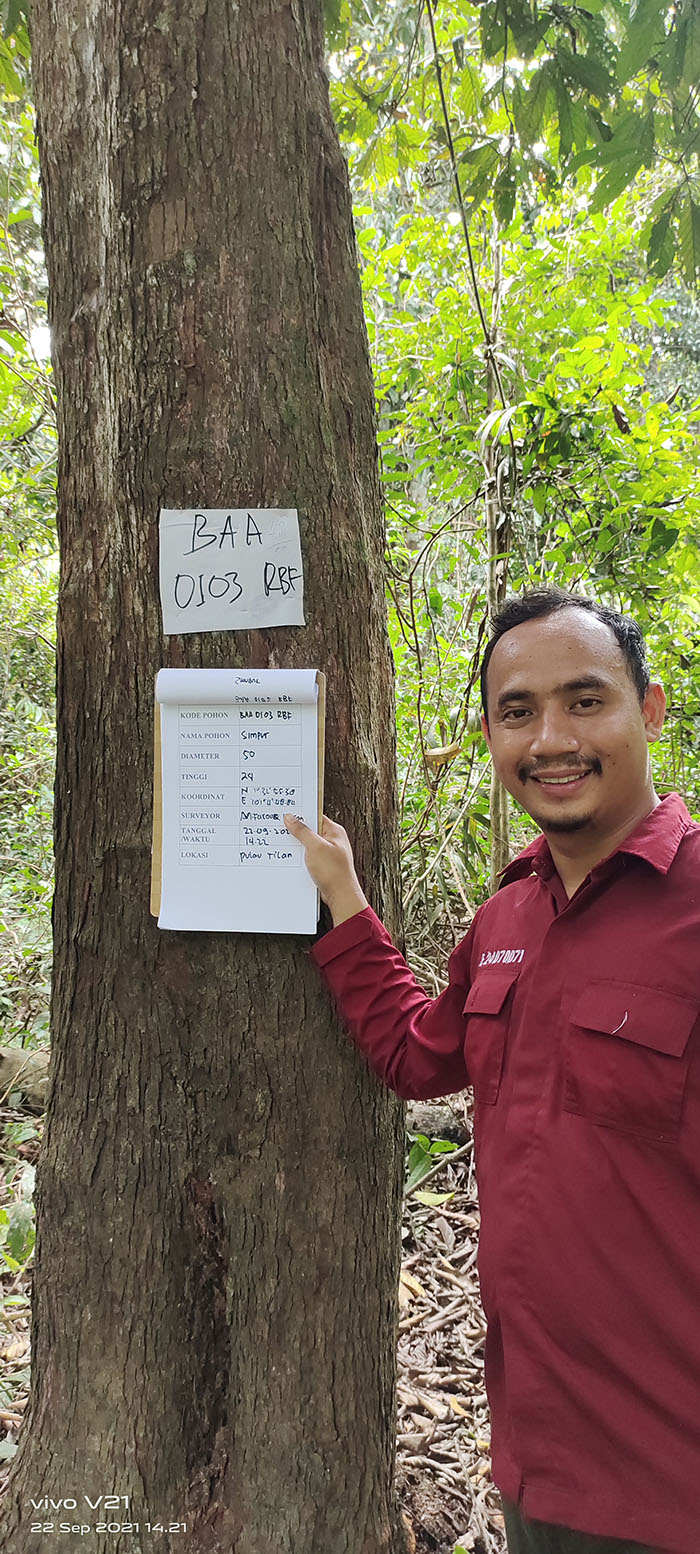 BAA
0103 RBF
KODE POHON BAA 0103 RBF
NAMA POHON SIMPUR
DIAMETER 50
TINGGI 24
KOORDINAT N
E
SURVEYOR
TANGGAL /WAKTU 22-09-202
14:22
LOKASI Pulau Tilan
vivo V21
22 Sep 2021 14.21